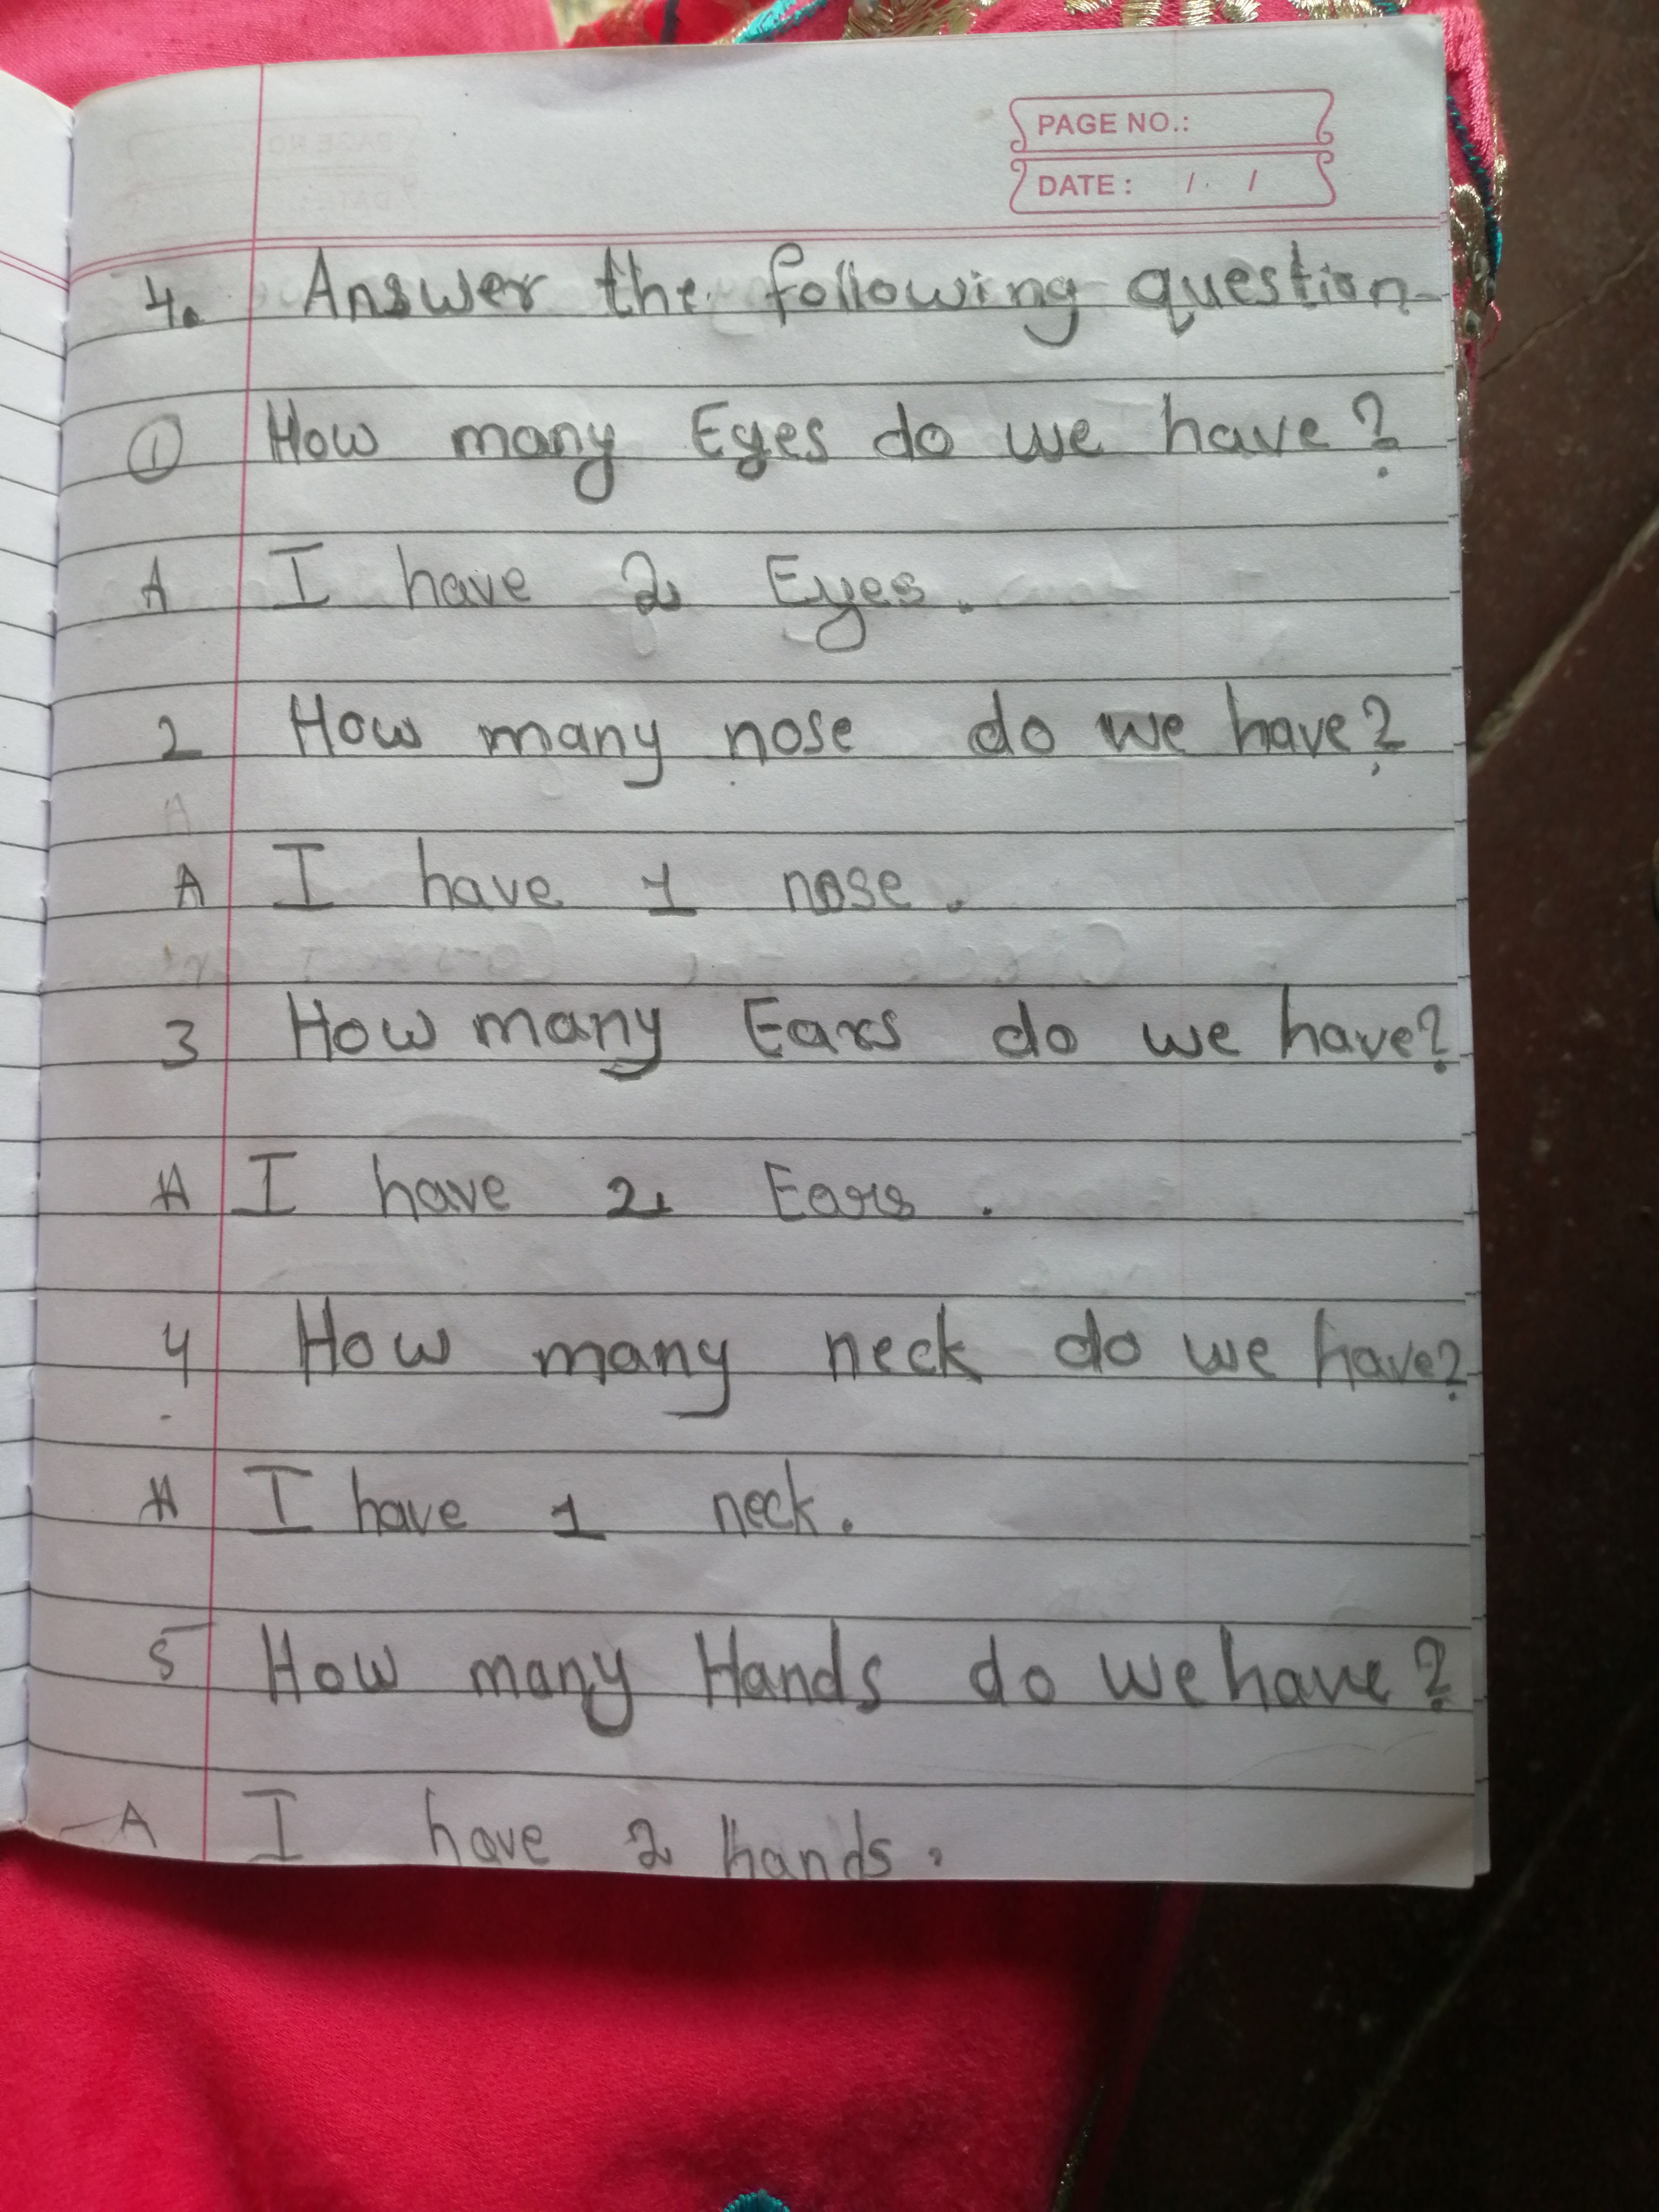 PAGE NO.:
DATE : / /
4. Answer the following question
① How many Eyes do we have?
A I have 2 Eyes.
2 How many nose do we have?
A I have 1 nose.
3 How many Ears do we have?
A I have 2 Ears.
4 How many neck do we have?
A I have 1 neck.
5 How many Hands do we have?
A I have 2 hands.